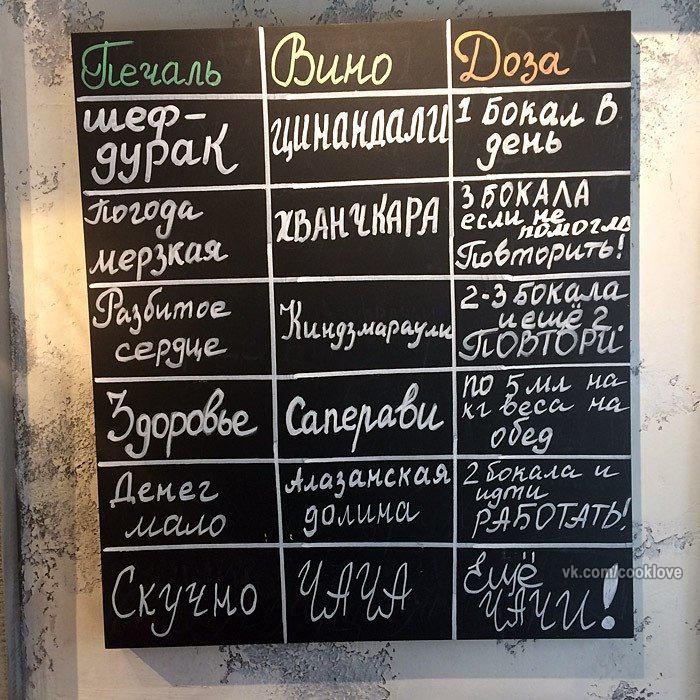 Печаль
Вино
Доза
шеф-
дурак
цинандали
1 бокал в
день
Погода
мерзкая
хванчкара
3 бокала
если не
помогло
Повторить!
Разбитое
сердце
Киндзмараули
2-3 бокала
и ещё 2.
ПОВТОРИ
Здоровье
Саперави
по 5 мл на
кг веса на
обед
Денег
мало
Алазанская
долина
2 бокала и
идти
РАБОТАТЬ!
Скучно
ЧАЧА
Ещё
ЧАЧИ!
vk.com/cooklove